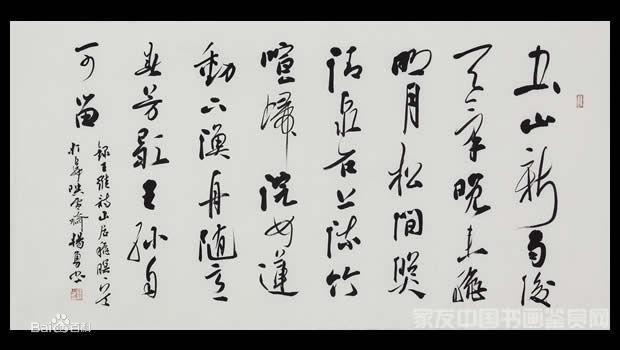 空山新雨後
天氣晚來秋
明月松間照
清泉石上流竹
喧歸浣女蓮
動下漁舟隨意
春芳歇王孫自
可留
錄王維詩山居秋暝一首
於映雪齋楊勇書
Bai百科
家友中国书画鉴网